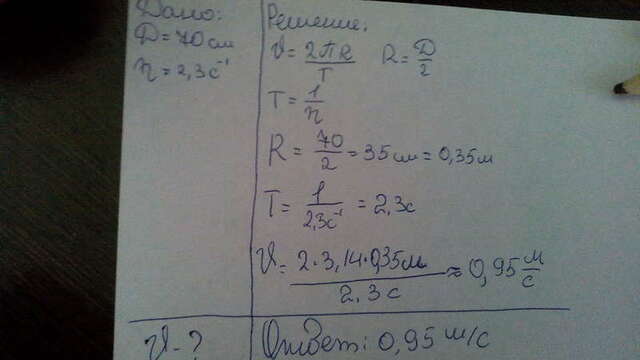 Дано:
D = 70 см
n = 2,3 с⁻¹
v - ?
Решение:
v = 2πR/T R = D/2
T = 1/n
R = 70/2 = 35 см = 0,35 м
T = 1/2,3с⁻¹ = 2,3с
v = 2·3,14·0,35м/2,3с ≈ 0,95 м/с
Ответ: 0,95 м/с